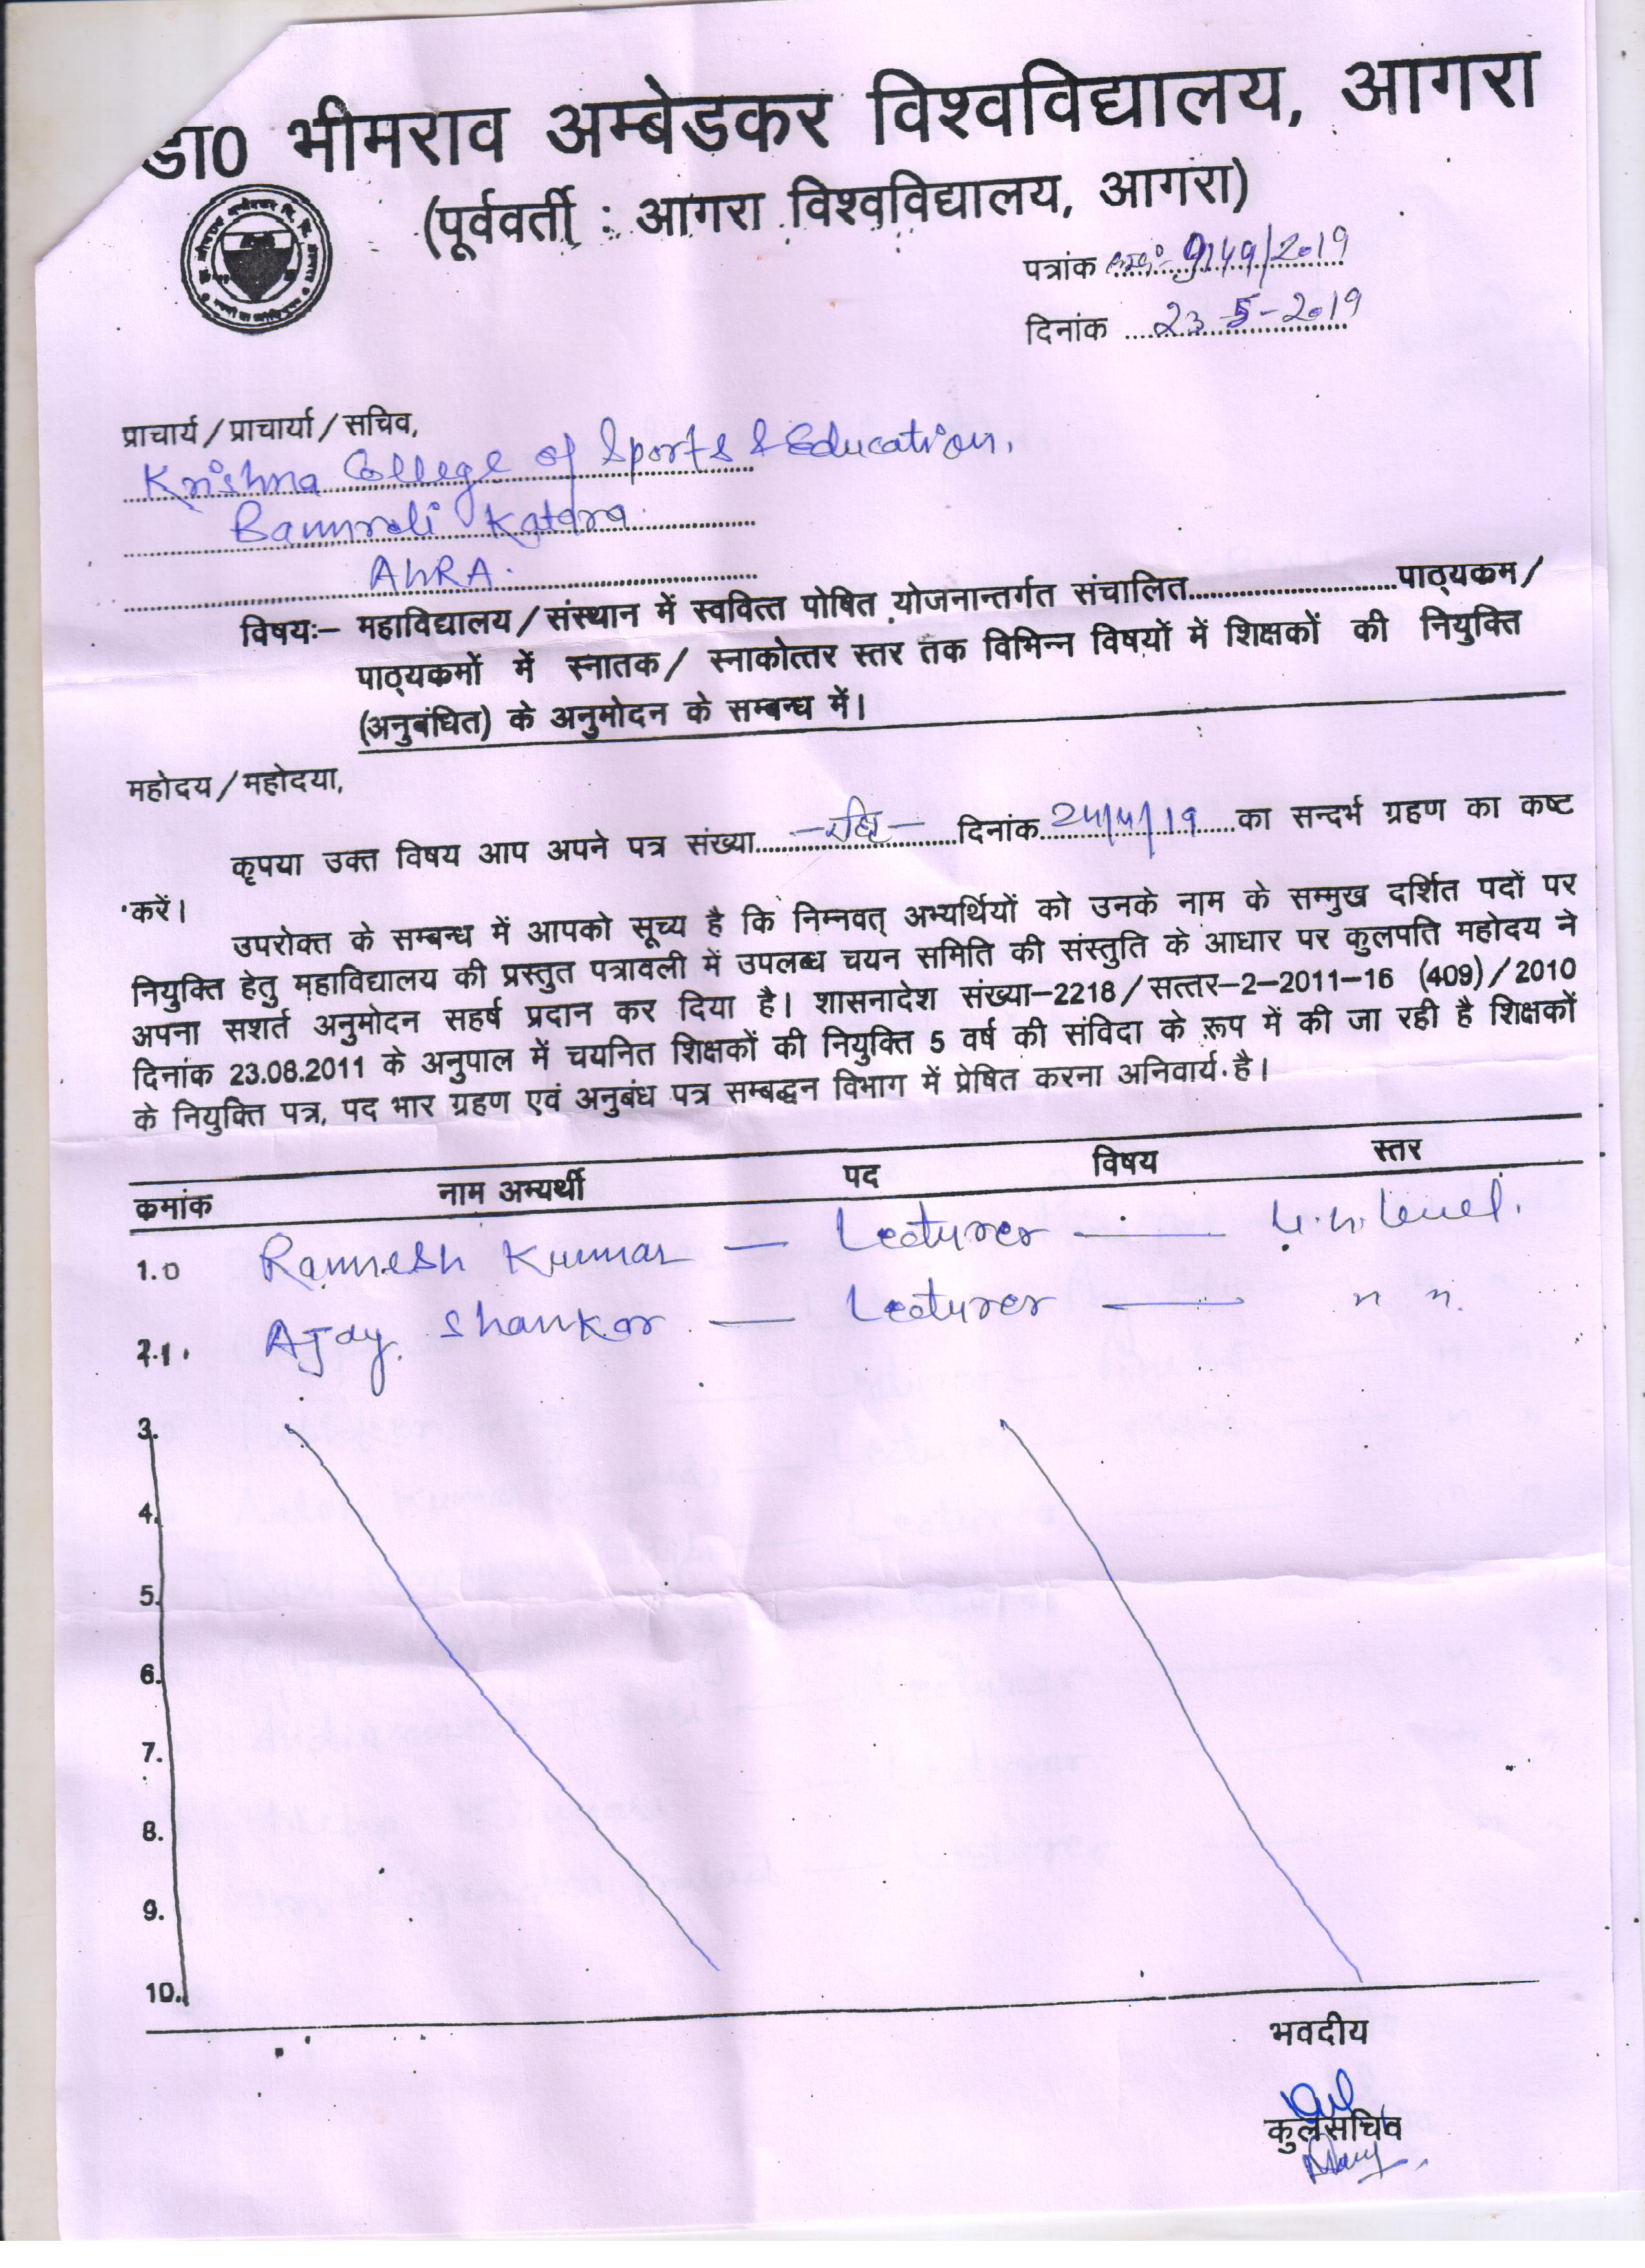 डा0 भीमराव अम्बेडकर विश्वविद्यालय, आगरा
(पूर्ववर्ती : आगरा विश्वविद्यालय, आगरा)
पत्रांक ......9149/2019
दिनांक ....23-5-2019
प्राचार्य/प्राचार्या/सचिव,
Krishna College of Sports & Education,
Bamroli Katara
AhRA.
विषयः– महाविद्यालय/संस्थान में स्ववित्त पोषित योजनान्तर्गत संचालित..............................पाठ्यकम/
पाठ्यकमों में स्नातक/ स्नाकोत्तर स्तर तक विभिन्न विषयों में शिक्षकों की नियुक्ति
(अनुबंधित) के अनुमोदन के सम्बन्ध में।
महोदय/महोदया,
कृपया उक्त विषय आप अपने पत्र संख्या..............................दिनांक 24/4/19 का सन्दर्भ ग्रहण का कष्ट
करें।
उपरोक्त के सम्बन्ध में आपको सूच्य है कि निम्नवत् अभ्यर्थियों को उनके नाम के सम्मुख दर्शित पदों पर
नियुक्ति हेतु महाविद्यालय की प्रस्तुत पत्रावली में उपलब्ध चयन समिति की संस्तुति के आधार पर कुलपति महोदय ने
अपना सशर्त अनुमोदन सहर्ष प्रदान कर दिया है। शासनादेश संख्या–2218/सत्तर–2–2011–16 (409)/2010
दिनांक 23.08.2011 के अनुपाल में चयनित शिक्षकों की नियुक्ति 5 वर्ष की संविदा के रूप में की जा रही है शिक्षकों
के नियुक्ति पत्र, पद भार ग्रहण एवं अनुबंध पत्र सम्बद्धन विभाग में प्रेषित करना अनिवार्य है।
कमांक नाम अभ्यर्थी पद विषय स्तर
1.0 Ramesh Kumar — Lecturer — U.G. Level.
2.1. Ajay Shankar — Lecturer — " "
3.
4.
5.
6.
7.
8.
9.
10.
भवदीय
कुलसचिव